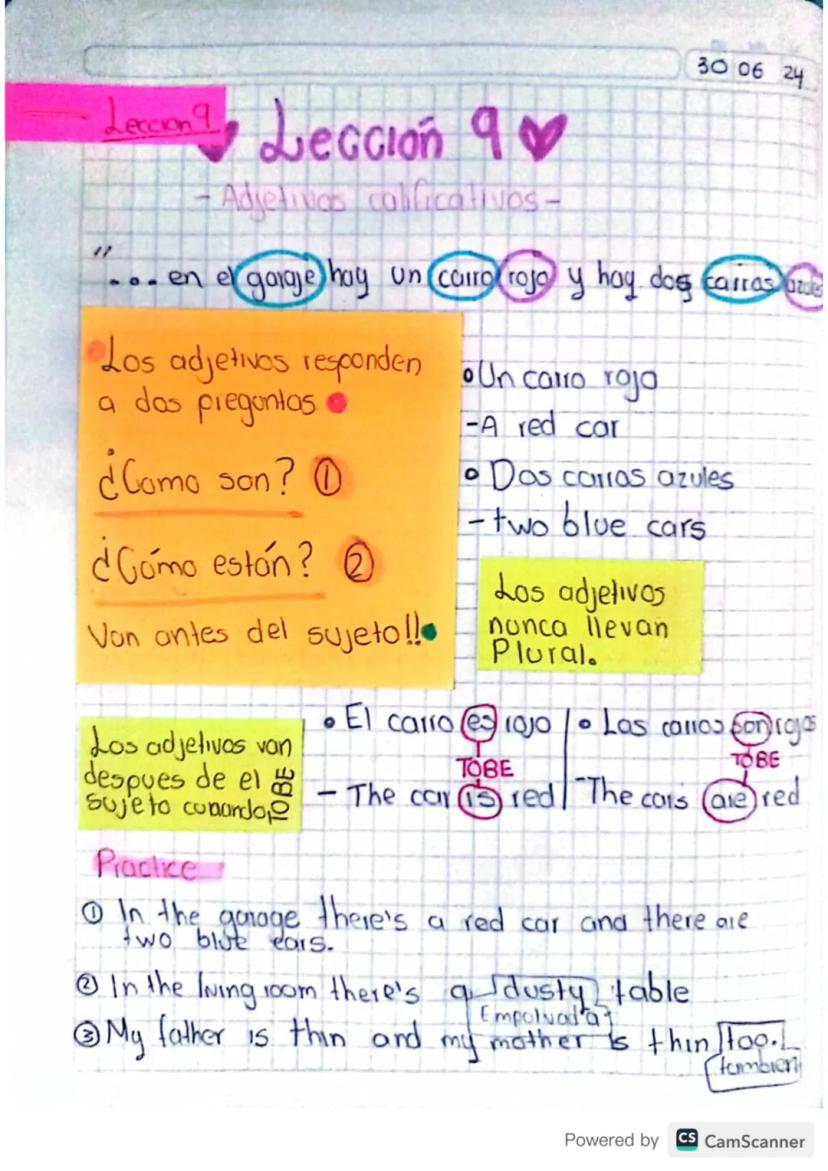 30 06 24
Leccion 9
Lección 9
- Adjetivos calificativos -
"... en el garaje hay un carro rojo y hay dos carros azules
Los adjetivos responden
a dos preguntas
¿Como son? ①
¿Cómo están? ②
Van antes del sujeto!!
Un carro rojo
- A red car
Dos carros azules
- two blue cars
Los adjetivos
nunca llevan
Plural.
Los adjetivos van
despues de el
sujeto cuando TOBE
• El carro es rojo
TOBE
- The car is red
• Los carros son rojos
TOBE
- The cars are red
Practice
① In the garage there's a red car and there are
two blue cars.
② In the living room there's a dusty table
Empolvada
③ My father is thin and my mother is thin too.
tambien
Powered by CS CamScanner